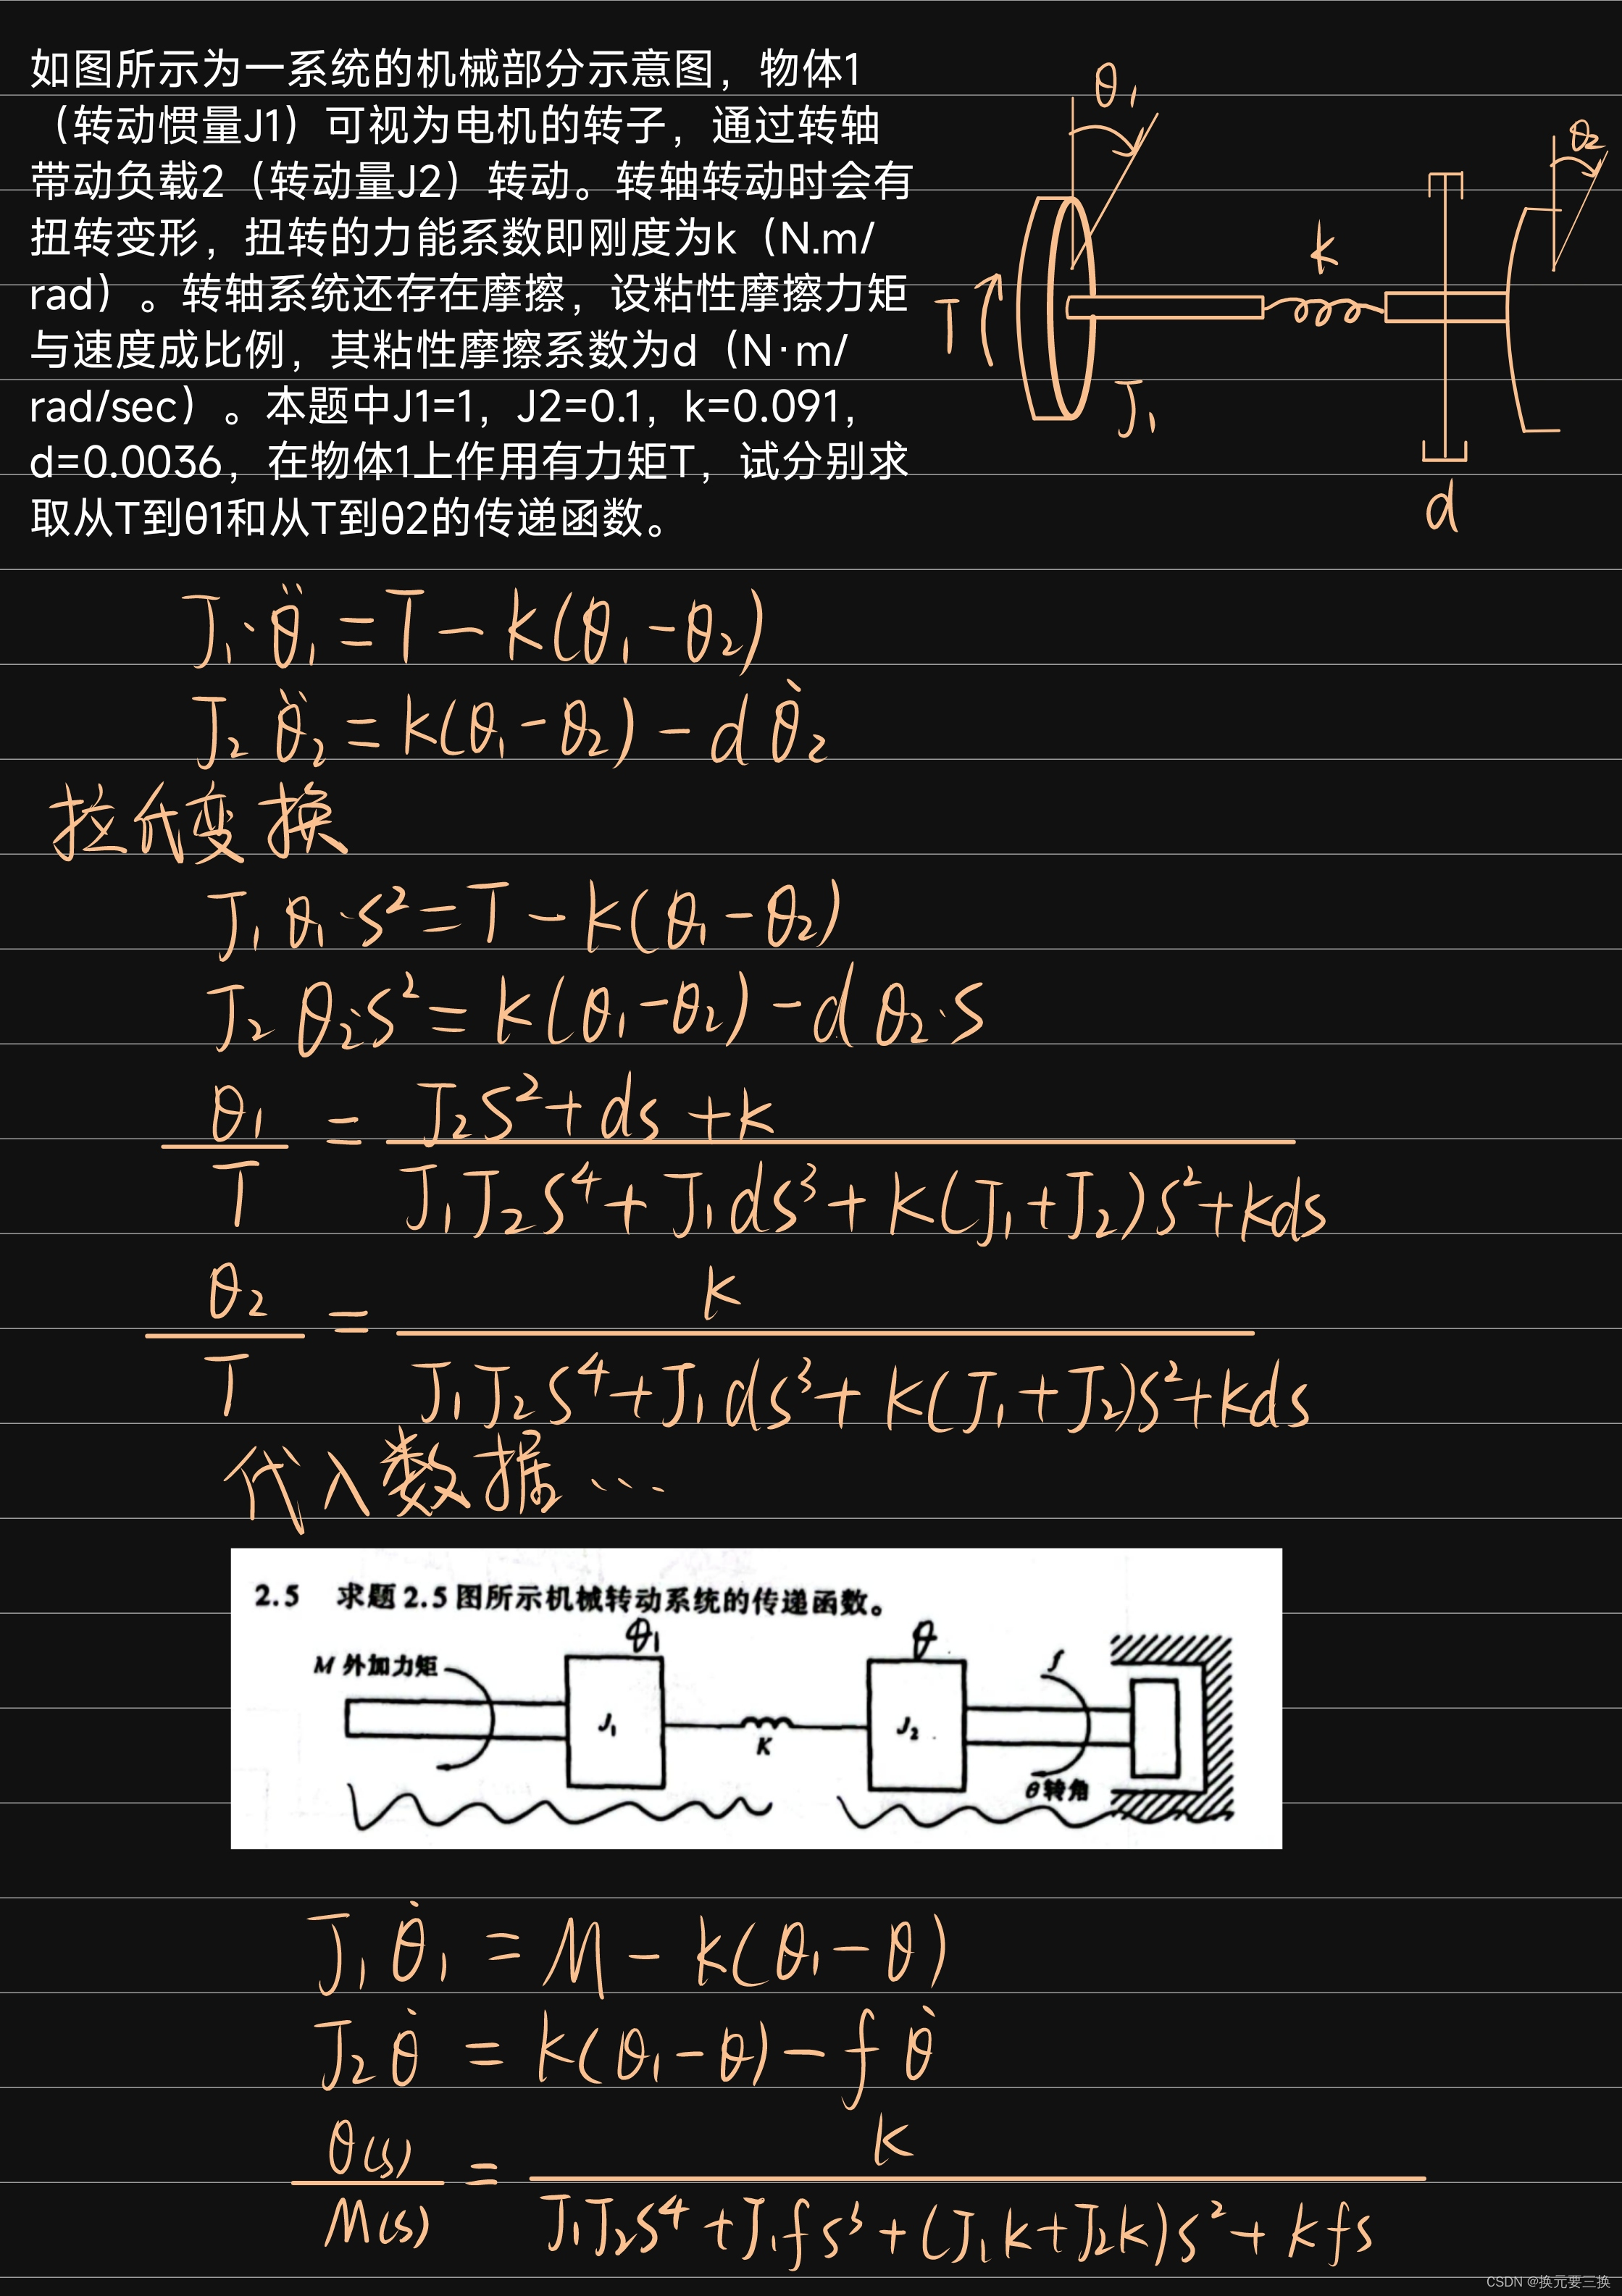 如图所示为一系统的机械部分示意图，物体1
（转动惯量J1）可视为电机的转子，通过转轴
带动负载2（转动量J2）转动。转轴转动时会有
扭转变形，扭转的力能系数即刚度为k（N.m/
rad）。转轴系统还存在摩擦，设粘性摩擦力矩
与速度成比例，其粘性摩擦系数为d（N·m/
rad/sec）。本题中J1=1，J2=0.1，k=0.091，
d=0.0036，在物体1上作用有力矩T，试分别求
取从T到θ1和从T到θ2的传递函数。
θ₁
θ₂
k
T
J₁
d
J₁·θ̈₁=T-k(θ₁-θ₂)
J₂θ̈₂=k(θ₁-θ₂)-dθ̇₂
拉氏变换
J₁θ₁·s²=T-k(θ₁-θ₂)
J₂θ₂·s²=k(θ₁-θ₂)-dθ₂·s
θ₁/T = (J₂s²+ds+k)/(J₁J₂s⁴+J₁ds³+k(J₁+J₂)s²+kds)
θ₂/T = k/(J₁J₂s⁴+J₁ds³+k(J₁+J₂)s²+kds)
代入数据...
2.5 求题2.5图所示机械转动系统的传递函数。
θ₁
θ
M 外加力矩
f
J₁
K
J₂
θ转角
J₁θ̇₁=M-k(θ₁-θ)
J₂θ̇=k(θ₁-θ)-fθ̇
θ(s)/M(s) = k/(J₁J₂s⁴+J₁fs³+(J₁k+J₂k)s²+kfs)
CSDN @换元要三换